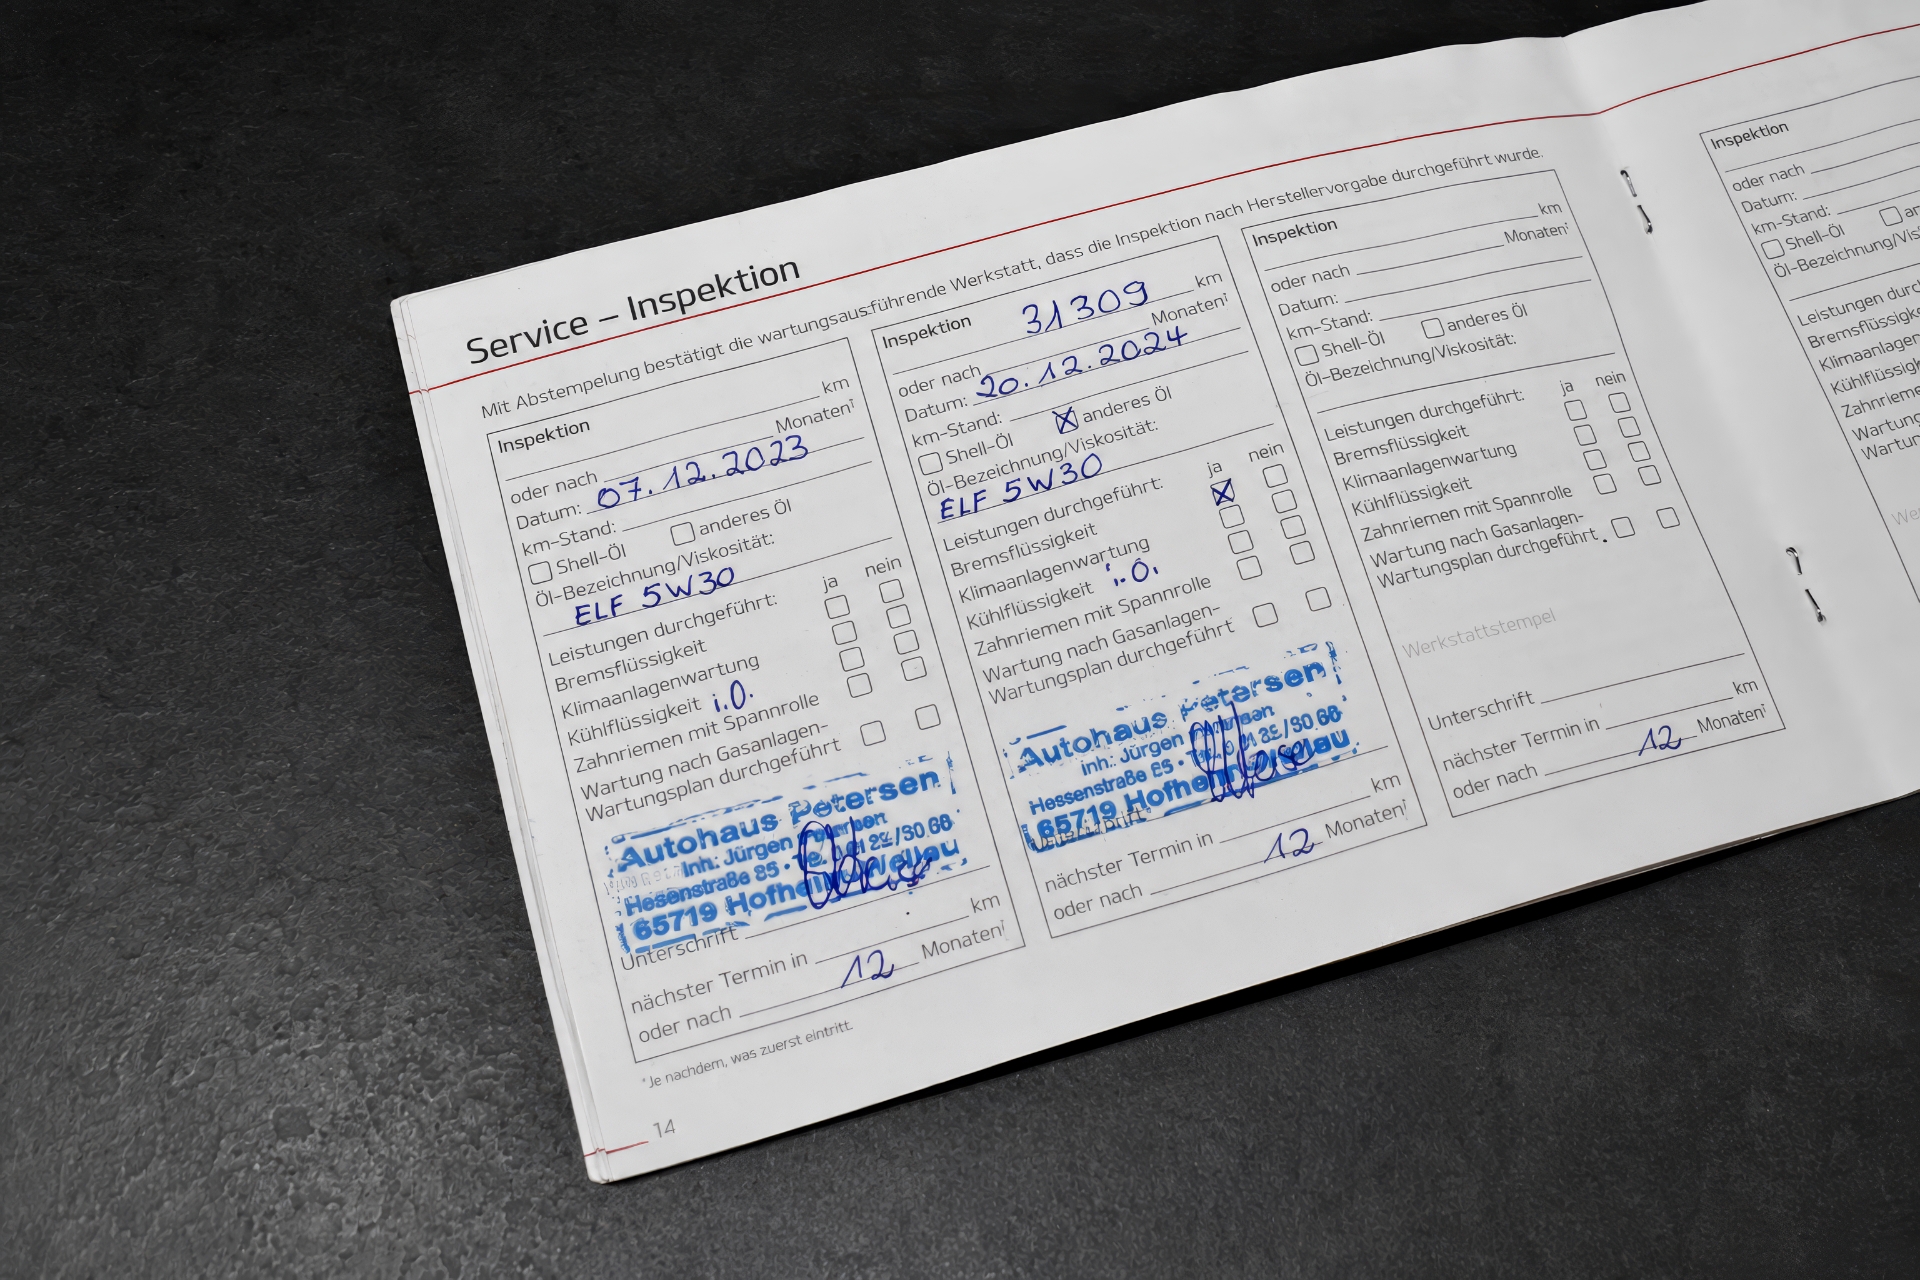 Service – Inspektion
Mit Abstempelung bestätigt die wartungsausführende Werkstatt, dass die Inspektion nach Herstellervorgabe durchgeführt wurde.
Inspektion
km
oder nach Monaten¹
Datum: 07.12.2023
km-Stand:
Shell-Öl anderes Öl
Öl-Bezeichnung/Viskosität:
ELF 5W30
ja nein
Leistungen durchgeführt:
Bremsflüssigkeit
Klimaanlagenwartung
Kühlflüssigkeit i.O.
Zahnriemen mit Spannrolle
Wartung nach Gasanlagen-
Wartungsplan durchgeführt
Autohaus Petersen
Inh. Jürgen
Hessenstraße
65719 Hofheim
Unterschrift
nächster Termin in km
oder nach 12 Monaten¹
Inspektion 31309 km
oder nach Monaten¹
Datum: 20.12.2024
km-Stand:
Shell-Öl X anderes Öl
Öl-Bezeichnung/Viskosität:
ELF 5W30
ja nein
Leistungen durchgeführt:
Bremsflüssigkeit X
Klimaanlagenwartung
Kühlflüssigkeit i.O.
Zahnriemen mit Spannrolle
Wartung nach Gasanlagen-
Wartungsplan durchgeführt
Autohaus Petersen
Inh. Jürgen
Hessenstraße
65719 Hofheim
Unterschrift
nächster Termin in km
oder nach 12 Monaten¹
Inspektion
km
oder nach Monaten¹
Datum:
km-Stand:
Shell-Öl anderes Öl
Öl-Bezeichnung/Viskosität:
ja nein
Leistungen durchgeführt:
Bremsflüssigkeit
Klimaanlagenwartung
Kühlflüssigkeit
Zahnriemen mit Spannrolle
Wartung nach Gasanlagen-
Wartungsplan durchgeführt
Werkstattstempel
Unterschrift
nächster Termin in km
oder nach 12 Monaten¹
¹Je nachdem, was zuerst eintritt.
14
Inspektion
oder nach
Datum:
km-Stand:
Shell-Öl
Öl-Bezeichnung/